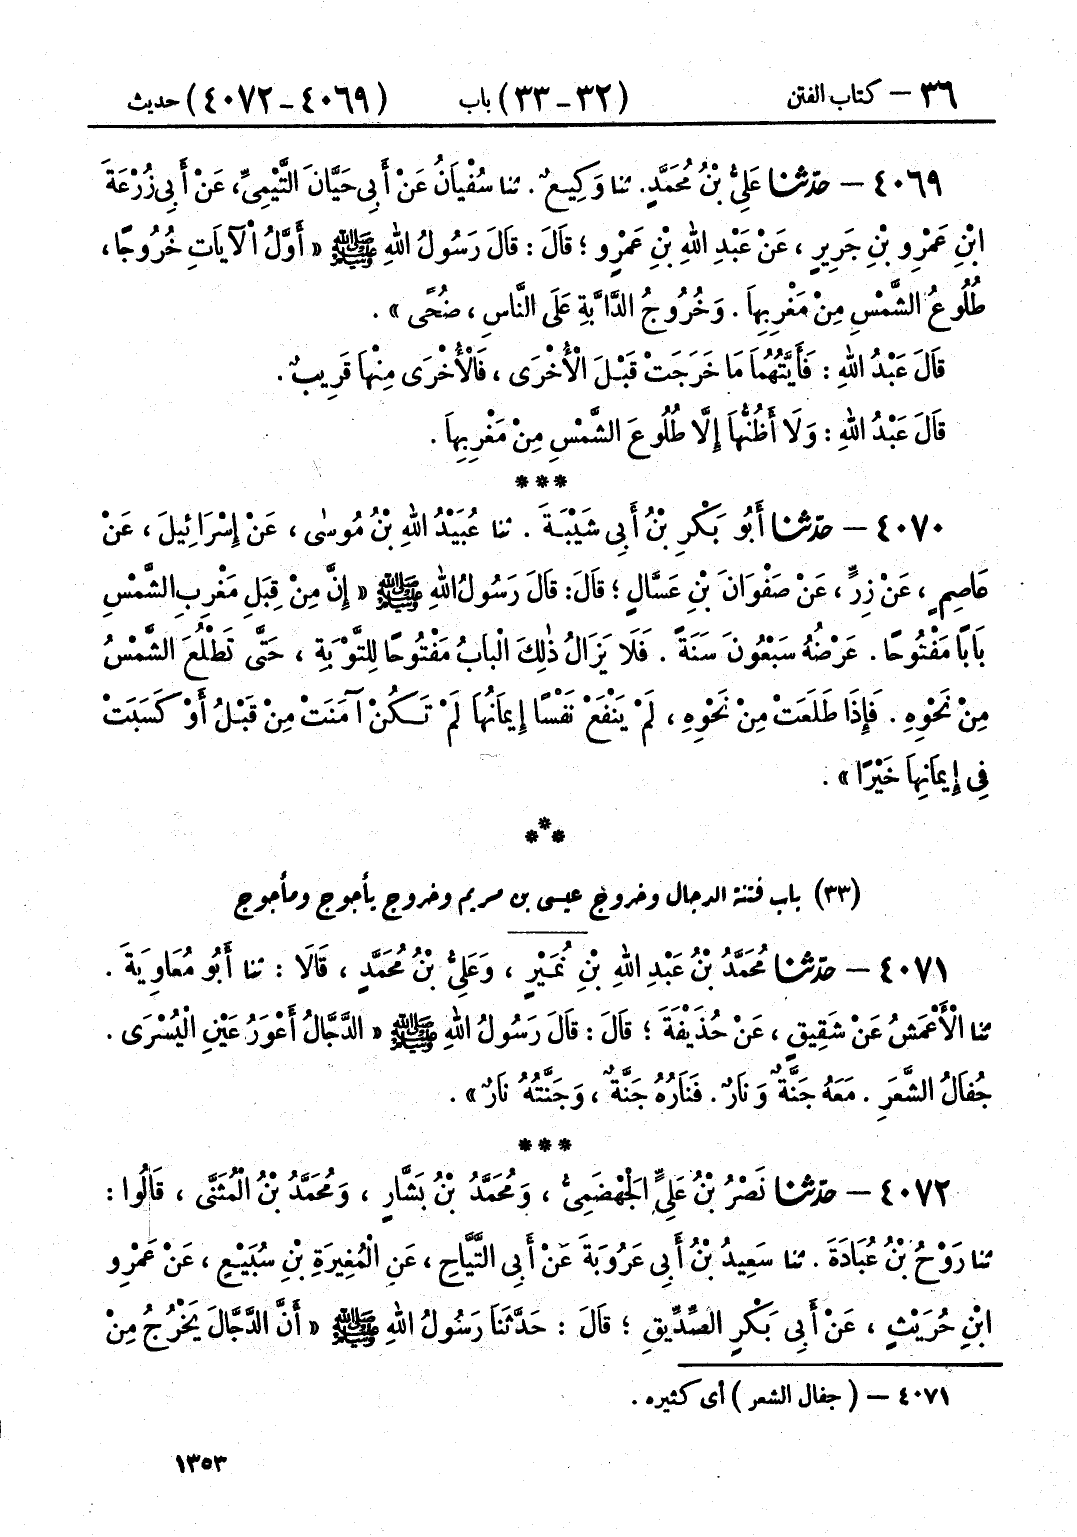 ٣٦ – كتاب الفتن (٣٢ – ٣٣) باب (٤٠٦٩ – ٤٠٧٢) حديث
٤٠٦٩ – حَدَّثَنَا عَلِيُّ بْنُ مُحَمَّدٍ. ثنا وَكِيعٌ. ثنا سُفْيَانُ عَنْ أَبِي حَيَّانَ التَّيْمِيِّ، عَنْ أَبِي زُرْعَةَ
ابْنِ عَمْرِو بْنِ جَرِيرٍ ، عَنْ عَبْدِ اللهِ بْنِ عَمْرٍو ؛ قَالَ : قَالَ رَسُولُ اللهِ ﷺ « أَوَّلُ الْآيَاتِ خُرُوجًا،
طُلُوعُ الشَّمْسِ مِنْ مَغْرِبِهَا . وَخُرُوجُ الدَّابَّةِ عَلَى النَّاسِ ، ضُحًى » .
قَالَ عَبْدُ اللهِ : فَأَيَّتُهُمَا مَا خَرَجَتْ قَبْلَ الْأُخْرَى ، فَالْأُخْرَى مِنْهَا قَرِيبٌ .
قَالَ عَبْدُ اللهِ : وَلَا أَظُنُّهَا إِلَّا طُلُوعَ الشَّمْسِ مِنْ مَغْرِبِهَا .
***
٤٠٧٠ – حَدَّثَنَا أَبُو بَكْرِ بْنُ أَبِي شَيْبَةَ . ثنا عُبَيْدُ اللهِ بْنُ مُوسَى ، عَنْ إِسْرَائِيلَ ، عَنْ
عَاصِمٍ ، عَنْ زِرٍّ ، عَنْ صَفْوَانَ بْنِ عَسَّالٍ ؛ قَالَ: قَالَ رَسُولُ اللهِ ﷺ « إِنَّ مِنْ قِبَلِ مَغْرِبِ الشَّمْسِ
بَابًا مَفْتُوحًا . عَرْضُهُ سَبْعُونَ سَنَةً . فَلَا يَزَالُ ذٰلِكَ الْبَابُ مَفْتُوحًا لِلتَّوْبَةِ ، حَتَّى تَطْلُعَ الشَّمْسُ
مِنْ نَحْوِهِ . فَإِذَا طَلَعَتْ مِنْ نَحْوِهِ ، لَمْ يَنْفَعْ نَفْسًا إِيمَانُهَا لَمْ تَكُنْ آمَنَتْ مِنْ قَبْلُ أَوْ كَسَبَتْ
فِي إِيمَانِهَا خَيْرًا » .
***
(٣٣) باب فتنة الدجال وخروج عيسى بن مريم وخروج يأجوج ومأجوج
٤٠٧١ – حَدَّثَنَا مُحَمَّدُ بْنُ عَبْدِ اللهِ بْنِ نُمَيْرٍ ، وَعَلِيُّ بْنُ مُحَمَّدٍ ، قَالَا : ثنا أَبُو مُعَاوِيَةَ .
ثنا الْأَعْمَشُ عَنْ شَقِيقٍ ، عَنْ حُذَيْفَةَ ؛ قَالَ : قَالَ رَسُولُ اللهِ ﷺ « الدَّجَّالُ أَعْوَرُ عَيْنِ الْيُسْرَى .
جُفَالُ الشَّعَرِ . مَعَهُ جَنَّةٌ وَنَارٌ . فَنَارُهُ جَنَّةٌ ، وَجَنَّتُهُ نَارٌ » .
***
٤٠٧٢ – حَدَّثَنَا نَصْرُ بْنُ عَلِيٍّ الْجَهْضَمِيُّ ، وَمُحَمَّدُ بْنُ بَشَّارٍ ، وَمُحَمَّدُ بْنُ الْمُثَنَّى ، قَالُوا :
ثنا رَوْحُ بْنُ عُبَادَةَ . ثنا سَعِيدُ بْنُ أَبِي عَرُوبَةَ عَنْ أَبِي التَّيَّاحِ ، عَنِ الْمُغِيرَةِ بْنِ سُبَيْعٍ ، عَنْ عَمْرِو
ابْنِ حُرَيْثٍ ، عَنْ أَبِي بَكْرٍ الصِّدِّيقِ ؛ قَالَ : حَدَّثَنَا رَسُولُ اللهِ ﷺ « أَنَّ الدَّجَّالَ يَخْرُجُ مِنْ
٤٠٧١ – ( جفال الشعر ) أى كثيره .
١٣٥٣